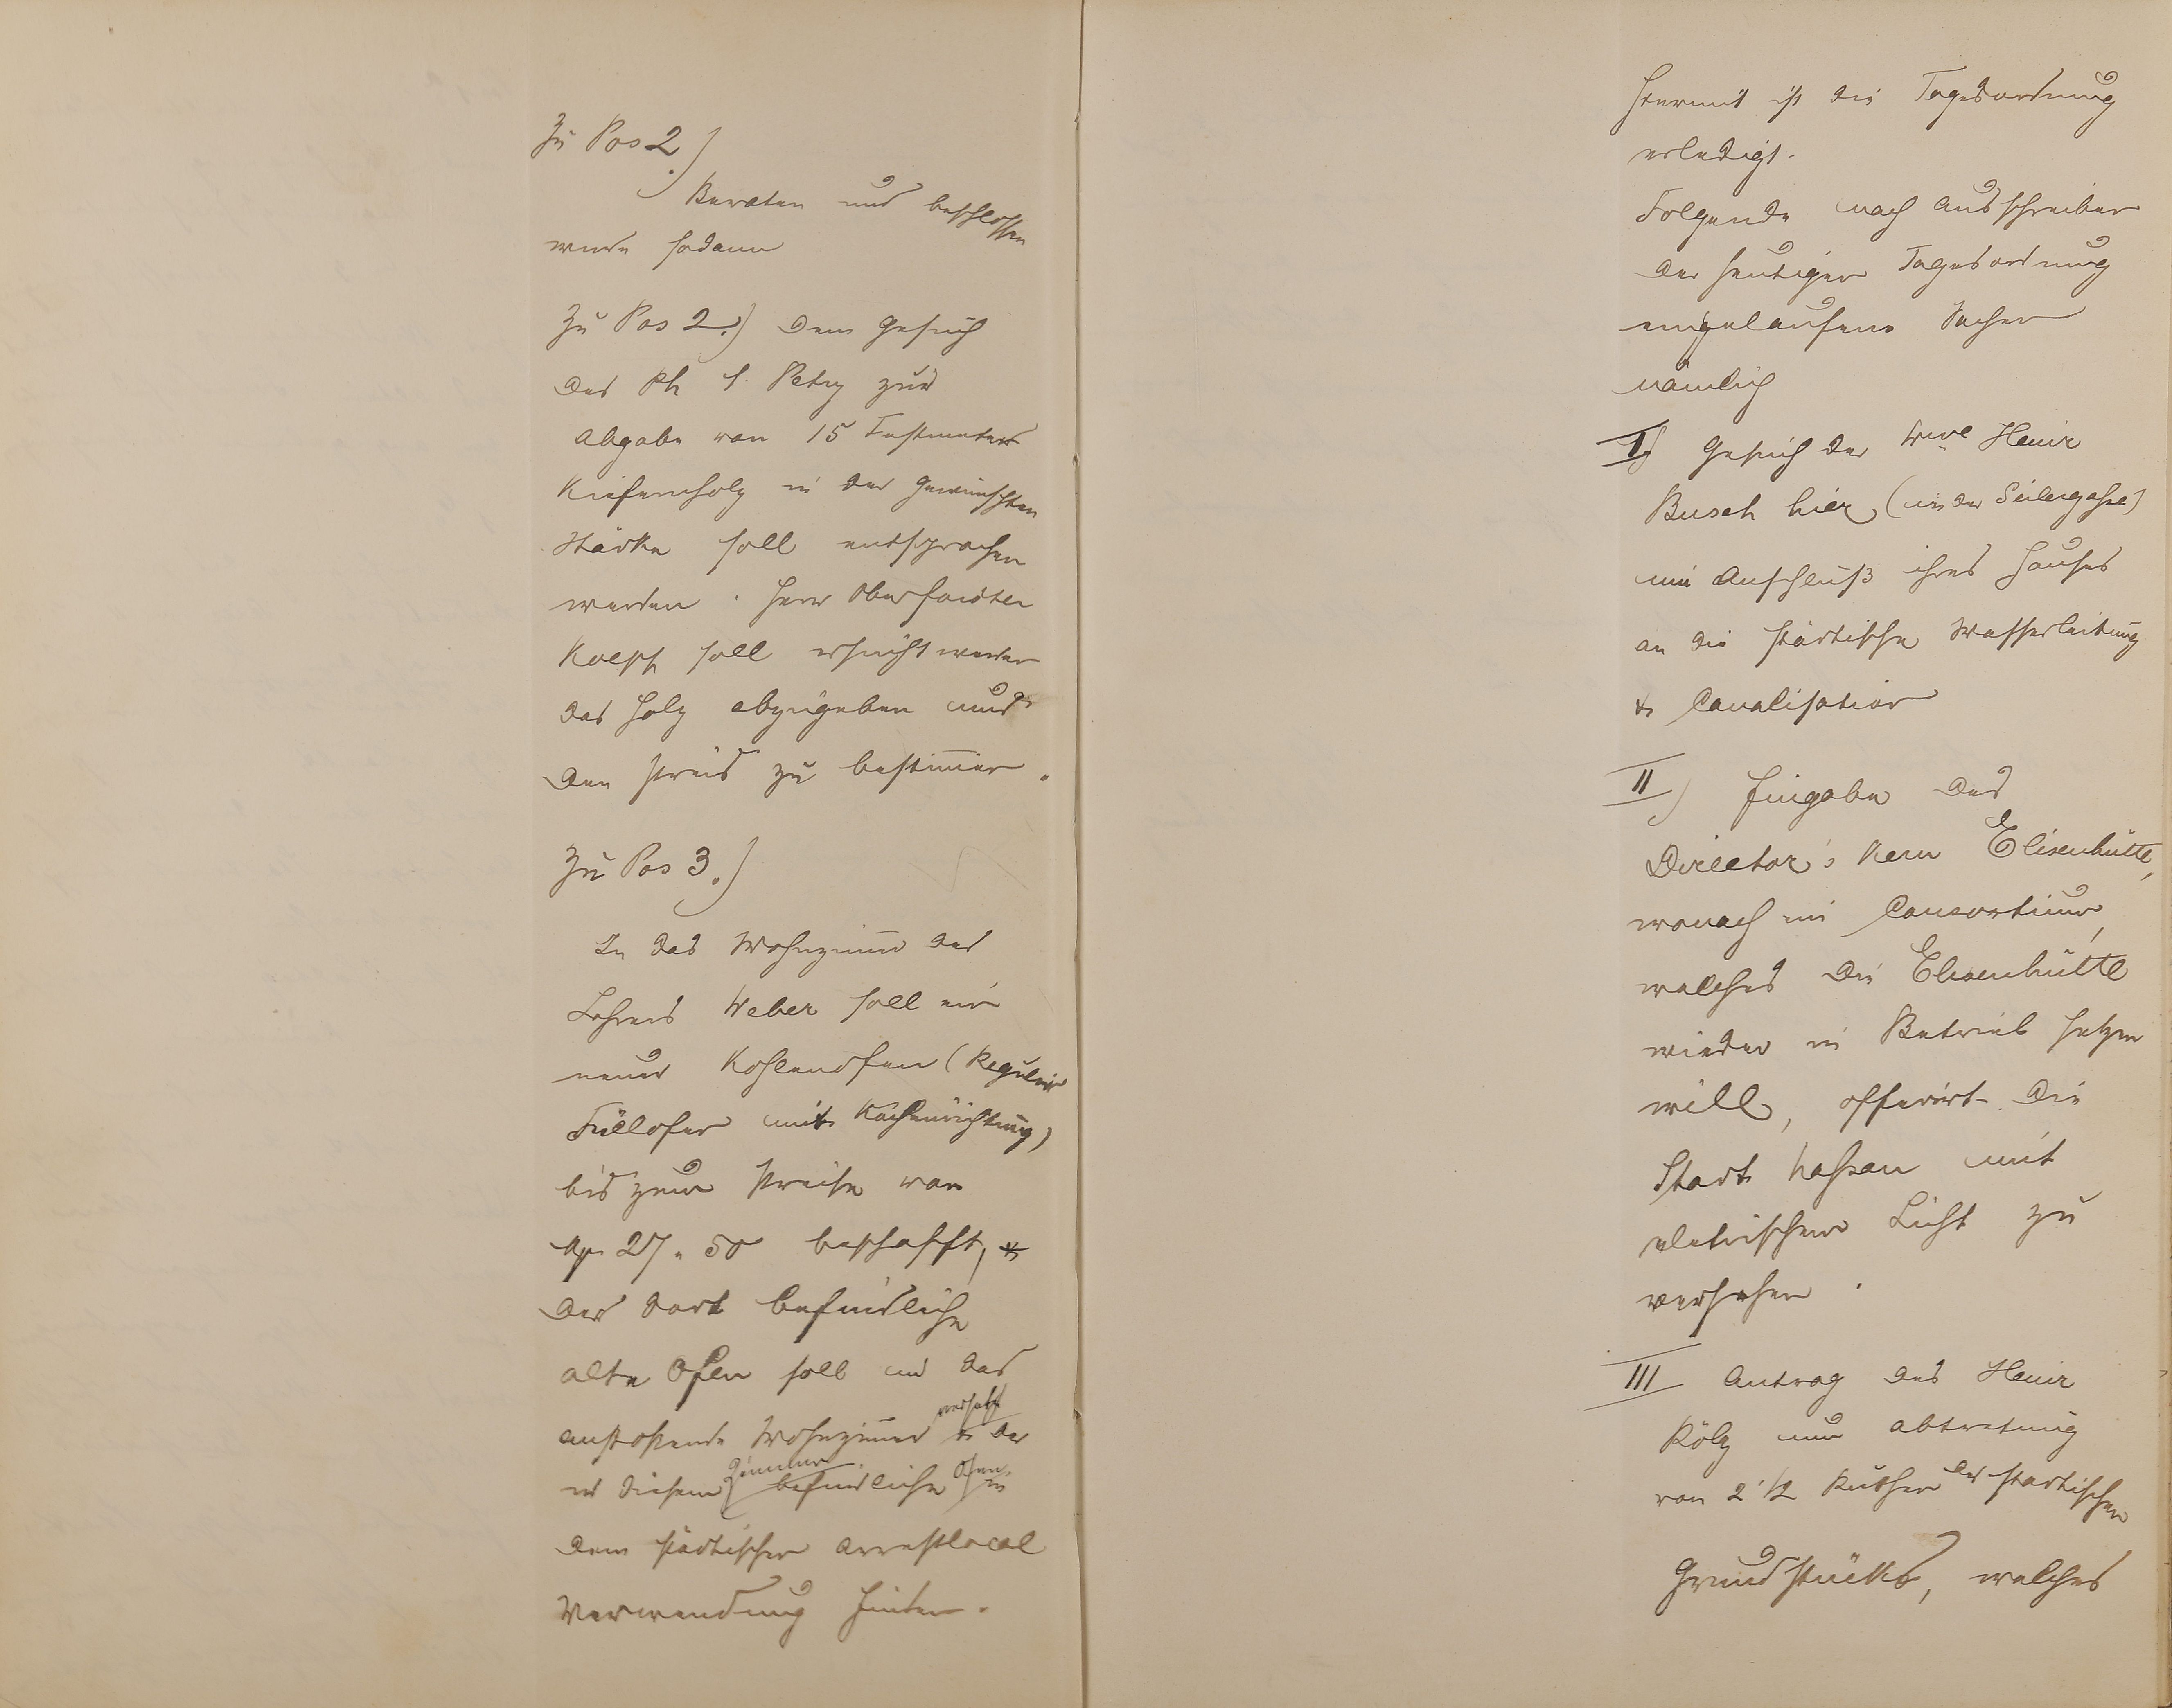 Zu Pos 2.)
Beraten und beschlossen
wurde sodann
Zu Pos 2.) Dem Gesuch
des Ph. Petry zur
Abgabe von 15 Festmeter
Kiefernholz in der gewünschten
Stärke soll entsprochen
werden. Herr Oberförster
soll ersucht werden
das Holz abzugeben und
den Preis zu bestimmen.
Zu Pos 3.)
In das Wohnzimmer des
Lehrers Weber soll ein
neuer Kohlenofen (Regulir
Füllofen mit Kocheinrichtung)
bis zum Preise von
M 27.50 beschafft, &
der dort befindliche
alte Ofen soll in das
anstoßende Wohnzimmer versetzt & der
in diesem Zimmer befindliche Ofen in
dem städtischen Arrestlocal
Verwendung finden.
Hiermit ist die Tagesordnung
erledigt.
Folgende nach Ausschreiben
der heutigen Tagesordnung
eingelaufene Sachen
nämlich
I) Gesuch der Wwe Heinr
Busch hier (in der Seilergasse)
um Anschluß ihres Hauses
an die städtische Wasserleitung
& Canalisation
II) Eingabe des
Director's Kern Elisenhütte,
wonach ein Consortium,
welches die Elisenhütte
wieder in Betrieb setzen
will, offerirt die
Stadt Nassau mit
eletrischem Licht zu
versehen.
III Antrag des Heinr
Kölz um Abtretung
von 2 1/2 Ruthen des städtischen
Grundstücks, welches